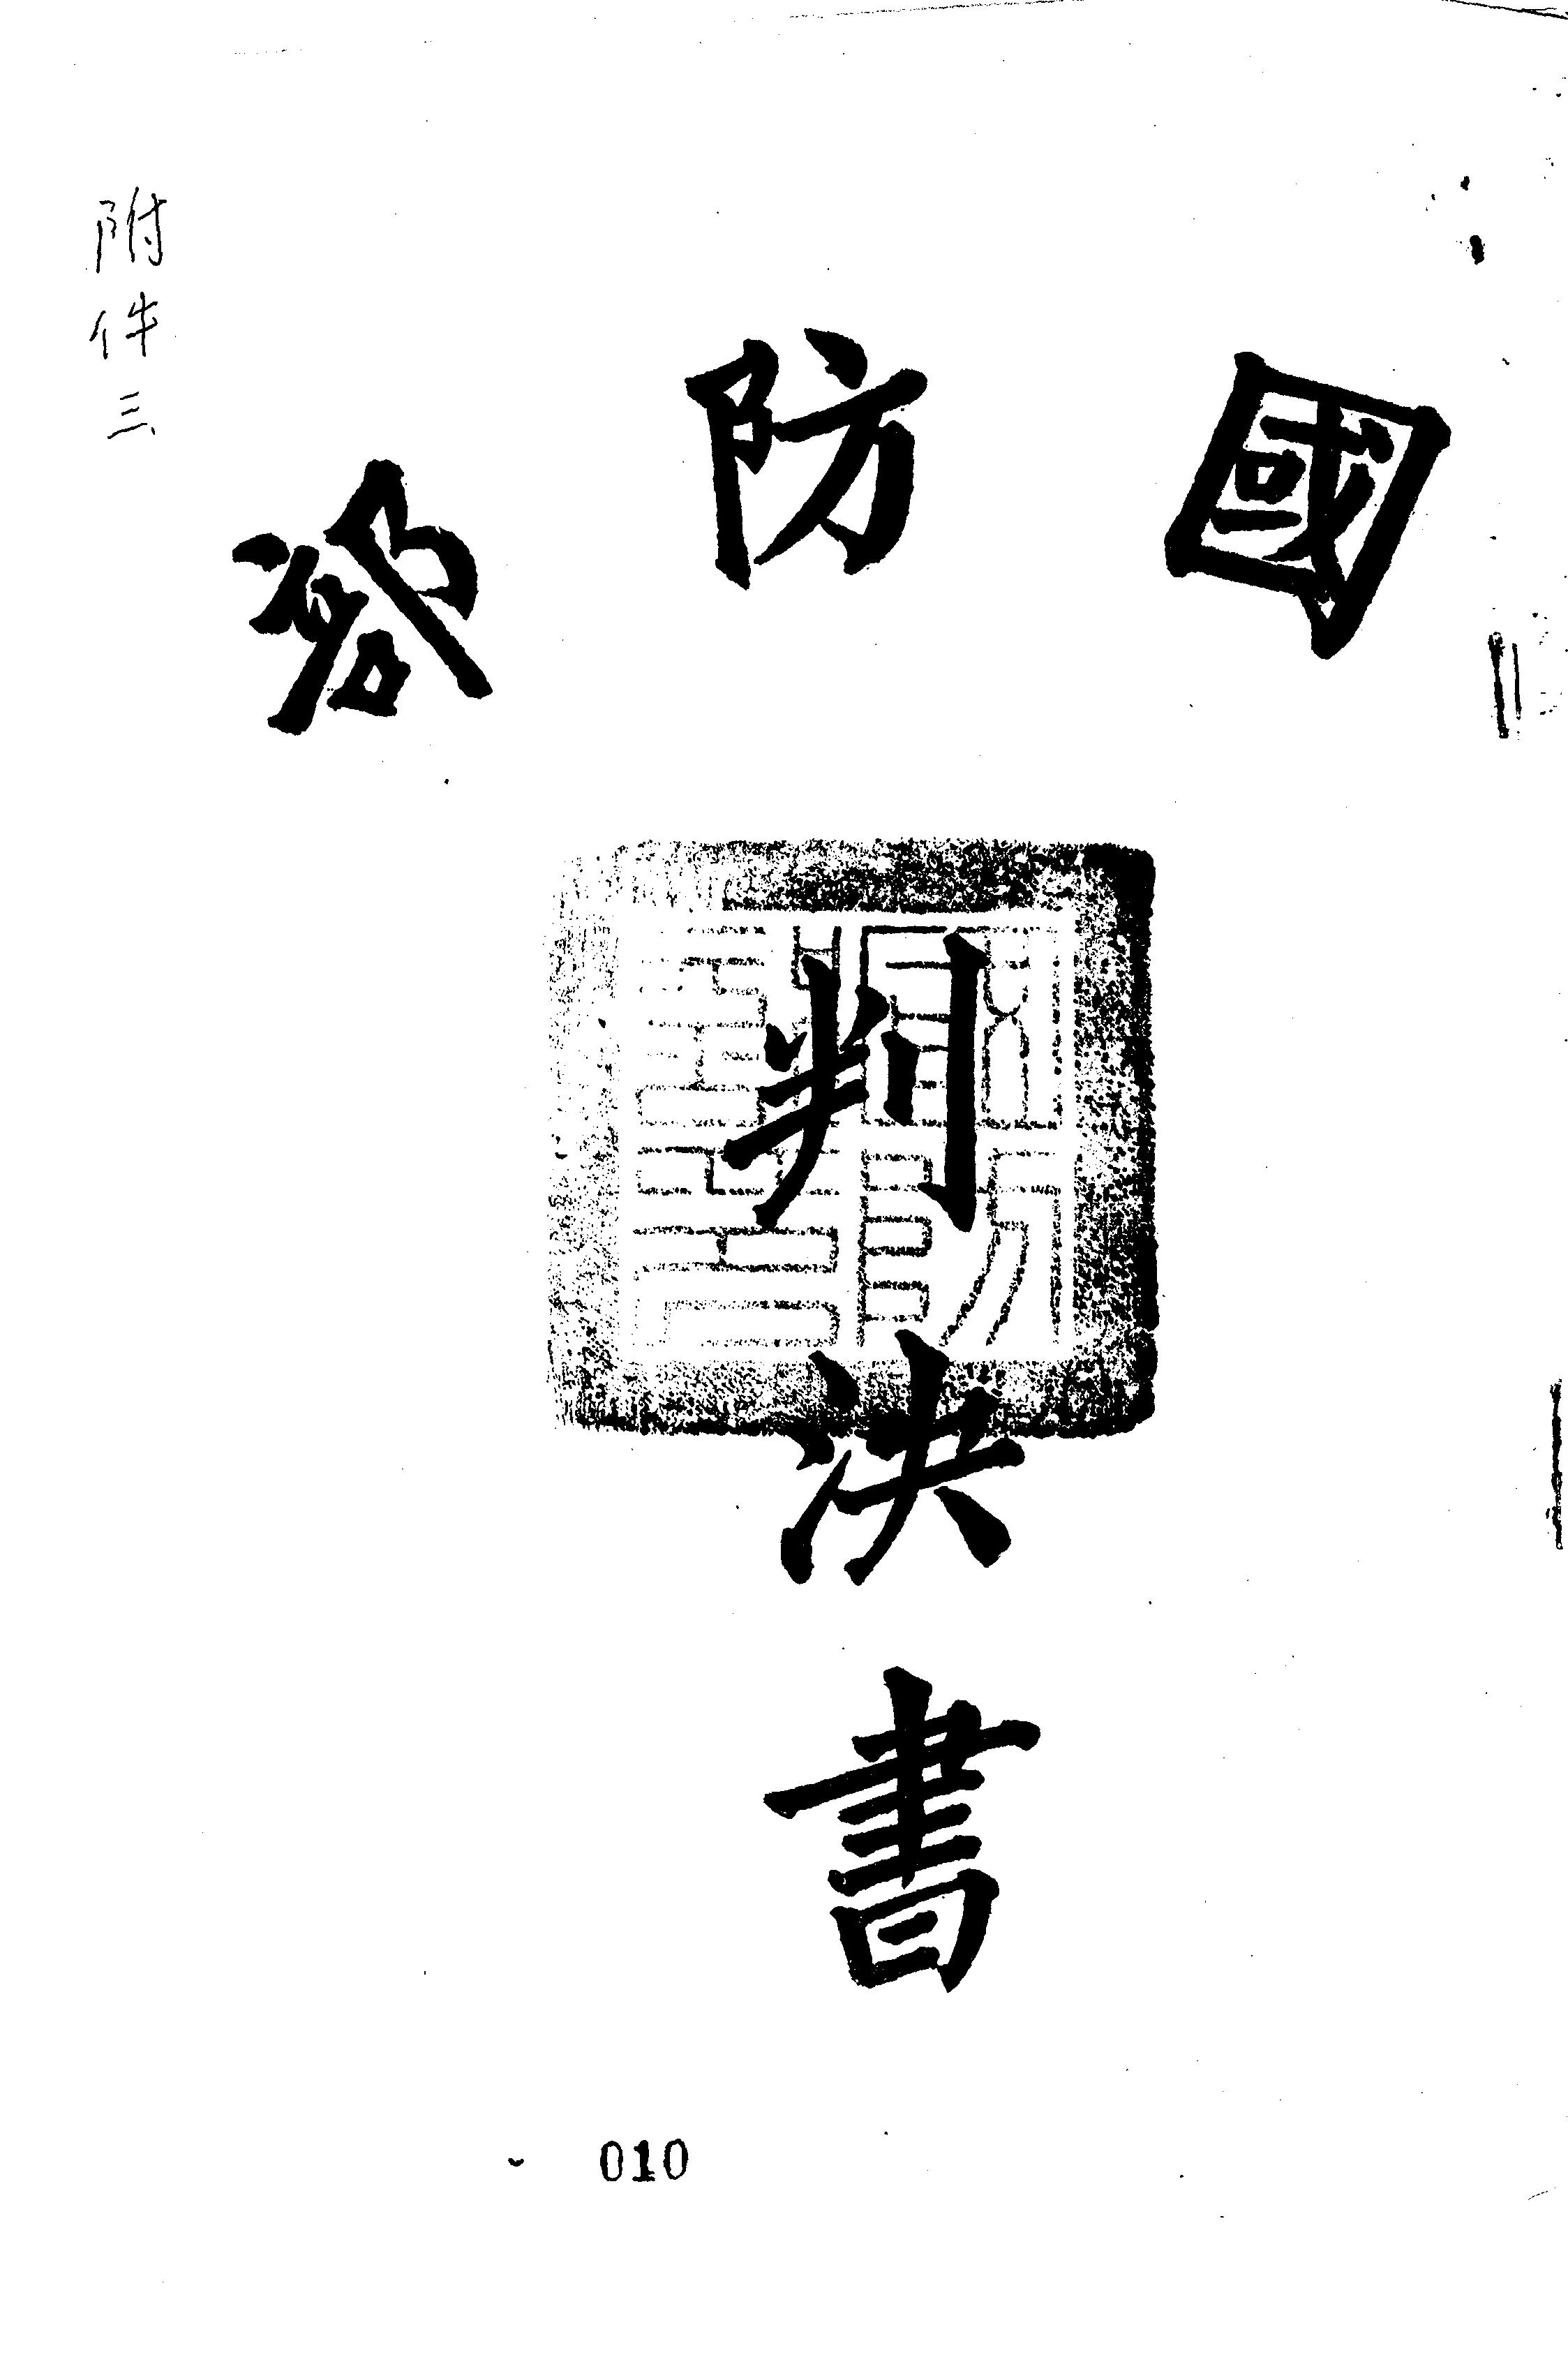 附件三
國防部
判決書
010